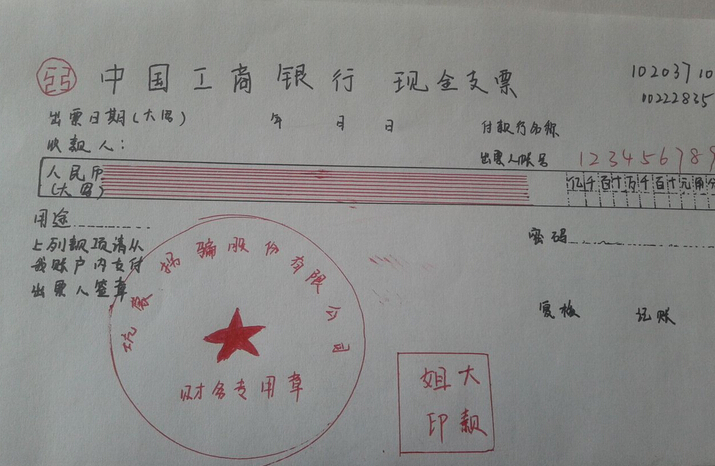 中国工商银行 现金支票
10203710
10222835
出票日期(大写) 年 月 日
付款行名称
收款人:
出票人账号 123456789
人民币
(大写)
亿千百十万千百十元角分
用途
密码
上列款项请从
我账户内支付
出票人签章
复核 记账
坑蒙拐骗股份有限公司
财务专用章
大款
姐印